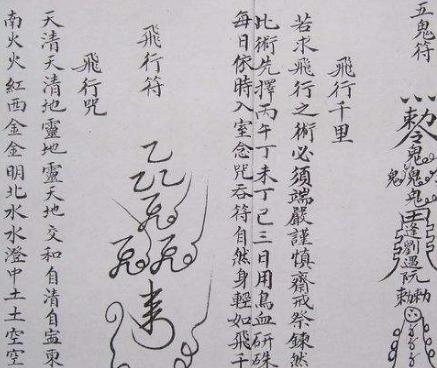 五鬼符
敕令
鬼鬼鬼
鬼
王逢劉遇阮
敕敕
飛行千里
若求飛行之術必須端嚴謹慎齋戒祭鍊然
此術先擇丙午丁未丁巳三日用鳥血研硃
每日依時入室念咒吞符自然身輕如飛千
飛行符
飛行咒
天清天清地靈地靈天地交和自清自寧東
南火火紅西金金明北水水澄中土土空空